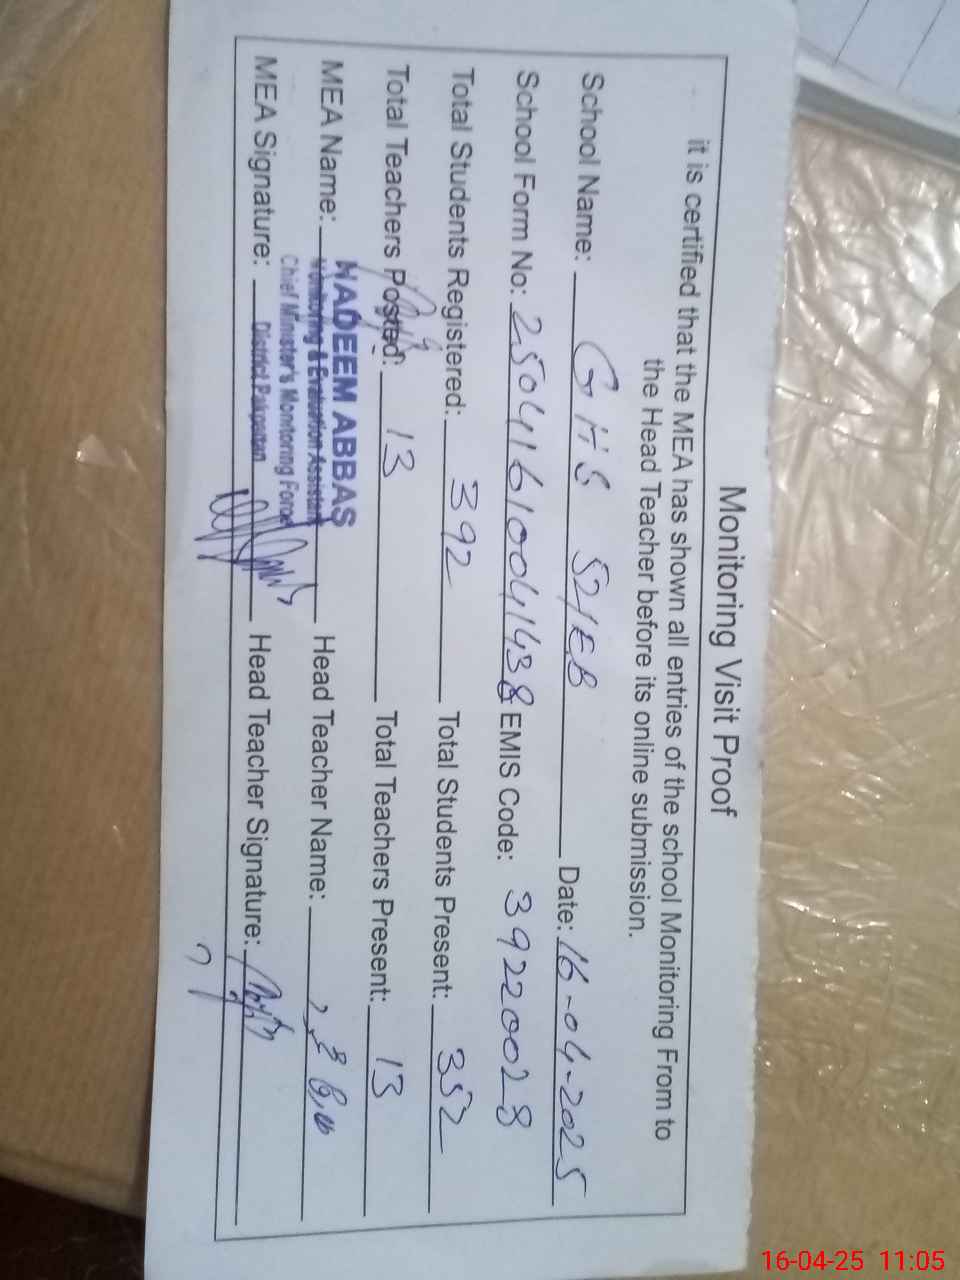 Monitoring Visit Proof
it is certified that the MEA has shown all entries of the school Monitoring From to
the Head Teacher before its online submission.
School Name: GHS 52/EB Date: 16-04-2025
School Form No: 25041610041438 EMIS Code: 39220028
Total Students Registered: 392 Total Students Present: 352
Total Teachers Posted: 13 Total Teachers Present: 13
MEA Name: NADEEM ABBAS Head Teacher Name:
Monitoring & Evaluation Assistant
Chief Minister's Monitoring Force
MEA Signature: District Pakpattan Head Teacher Signature:
16-04-25 11:05